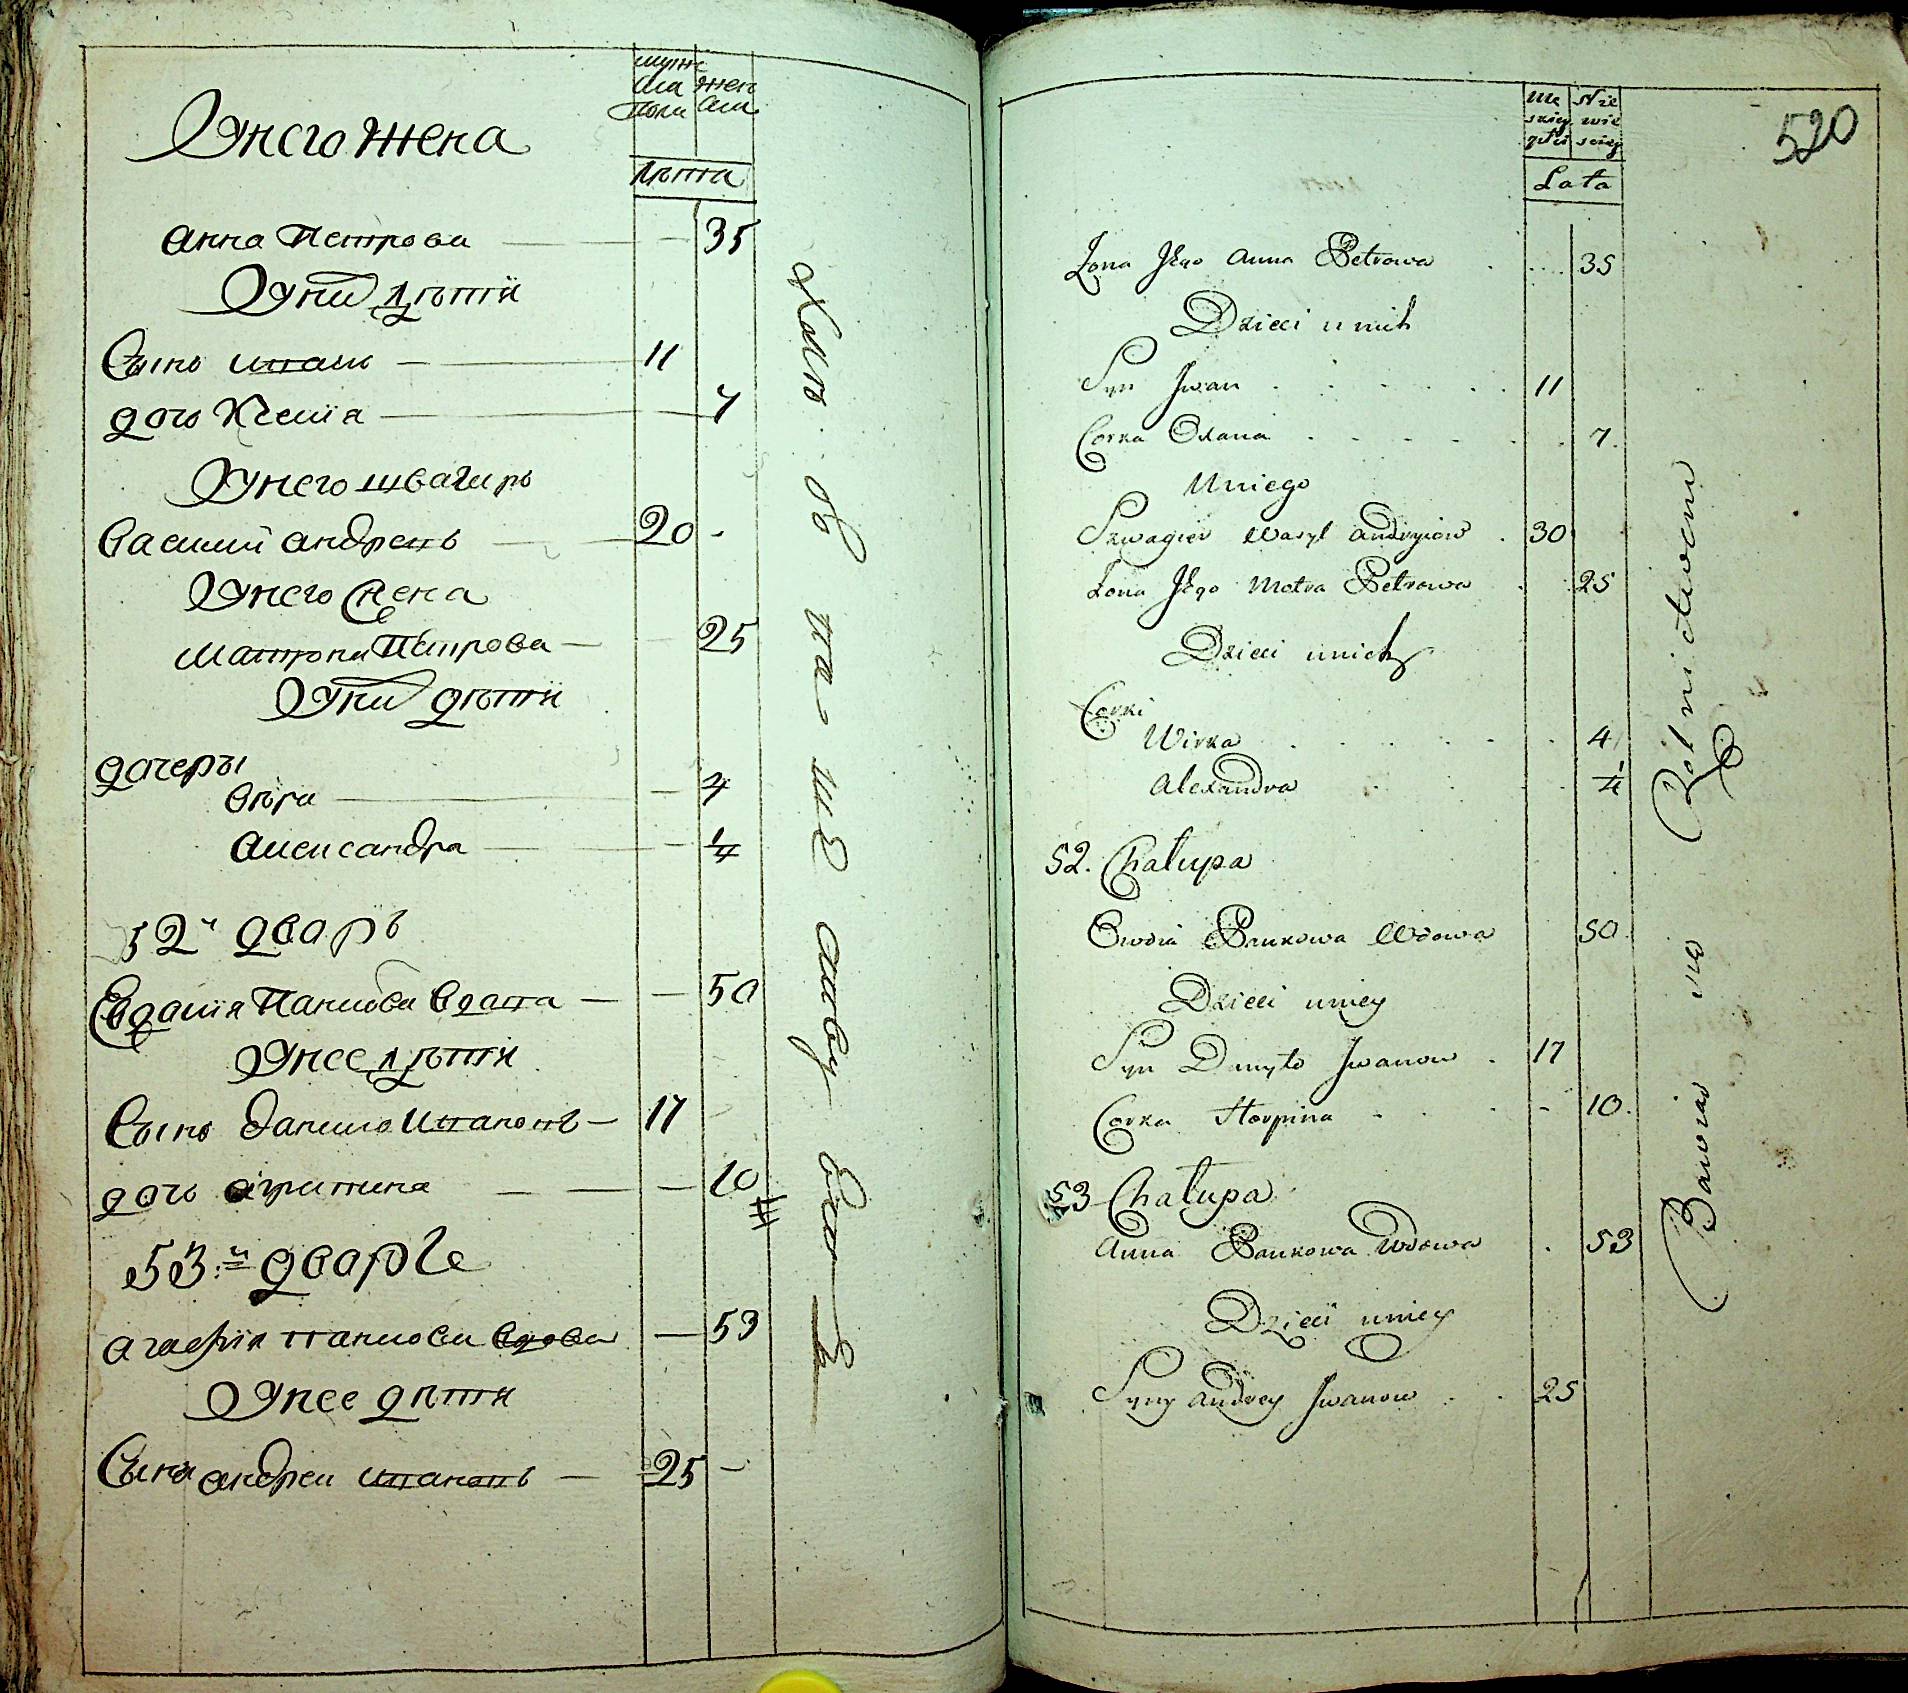 муже
ска жен
пола ска
Лѣта
Унего жена
анна Петрова — 35
Уних дѣти
Сынъ иванъ — 11
дочь Ксения — 7
Унего швагиръ
василий андреевъ — 20 -
Унего жена
матрона Петрова — 25
Уних дѣти
дочеры
вѣра — 4
александра — 1/4
52й дворъ
Евдокия Панкова вдова — 50
Унее дѣти
Сынъ данило ивановъ — 17
дочь агрипина — 10
53:й дворъ
агафия панкова вдова — 53
Унее дѣти
Сынъ андреи ивановъ — 25 -
520
Mę Nie
skiey wie
płci sciey
Lata
Żona Jego Anna Petrowa . .... 35
Dzieci u nich
Syn Jwan . . . . . 11
Corka Oxana . . . . . 7.
U niego
Szwagier Wasyl Andryiow . 30
Żona Jego Motra Petrowa . 25
Dzieci u nich
Corki
Wirka . . . . . 4
Alexandra . . . 1/4
52. Chałupa
Owdia Pankowa Wdowa 50.
Dzieci u niey
Syn Danyło Jwanow . 17
Corka Horpina - . . - 10.
53 Chałupa
Anna Pankowa Wdowa . 53
Dzieci u niey
Syny Andrey Jwanow . . 25
Bawią się Rolnictwem